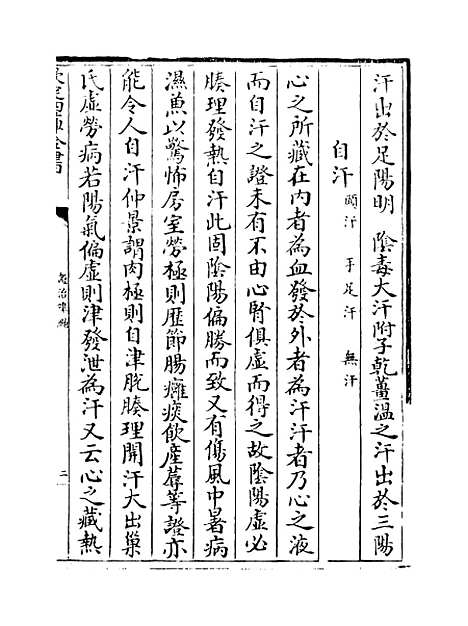 汗出於足陽明　陰毒大汗附子乾薑溫之汗出於三陽
自汗　頭汗　手足汗　無汗
心之所藏在内者為血發於外者為汗汗者乃心之液
而自汗之證未有不由心腎俱虛而得之故陰陽虛必
腠理發熱自汗此固陰陽偏勝而致又有傷風中暑病
濕兼以驚怖房室勞極則歴節腸癰痰飲産蓐等證亦
能令人自汗仲景謂肉極則自津脱腠理開汗大出巢
氏虛勞病若陽氣偏虛則津發泄為汗又云心之藏熱
證治準繩
三